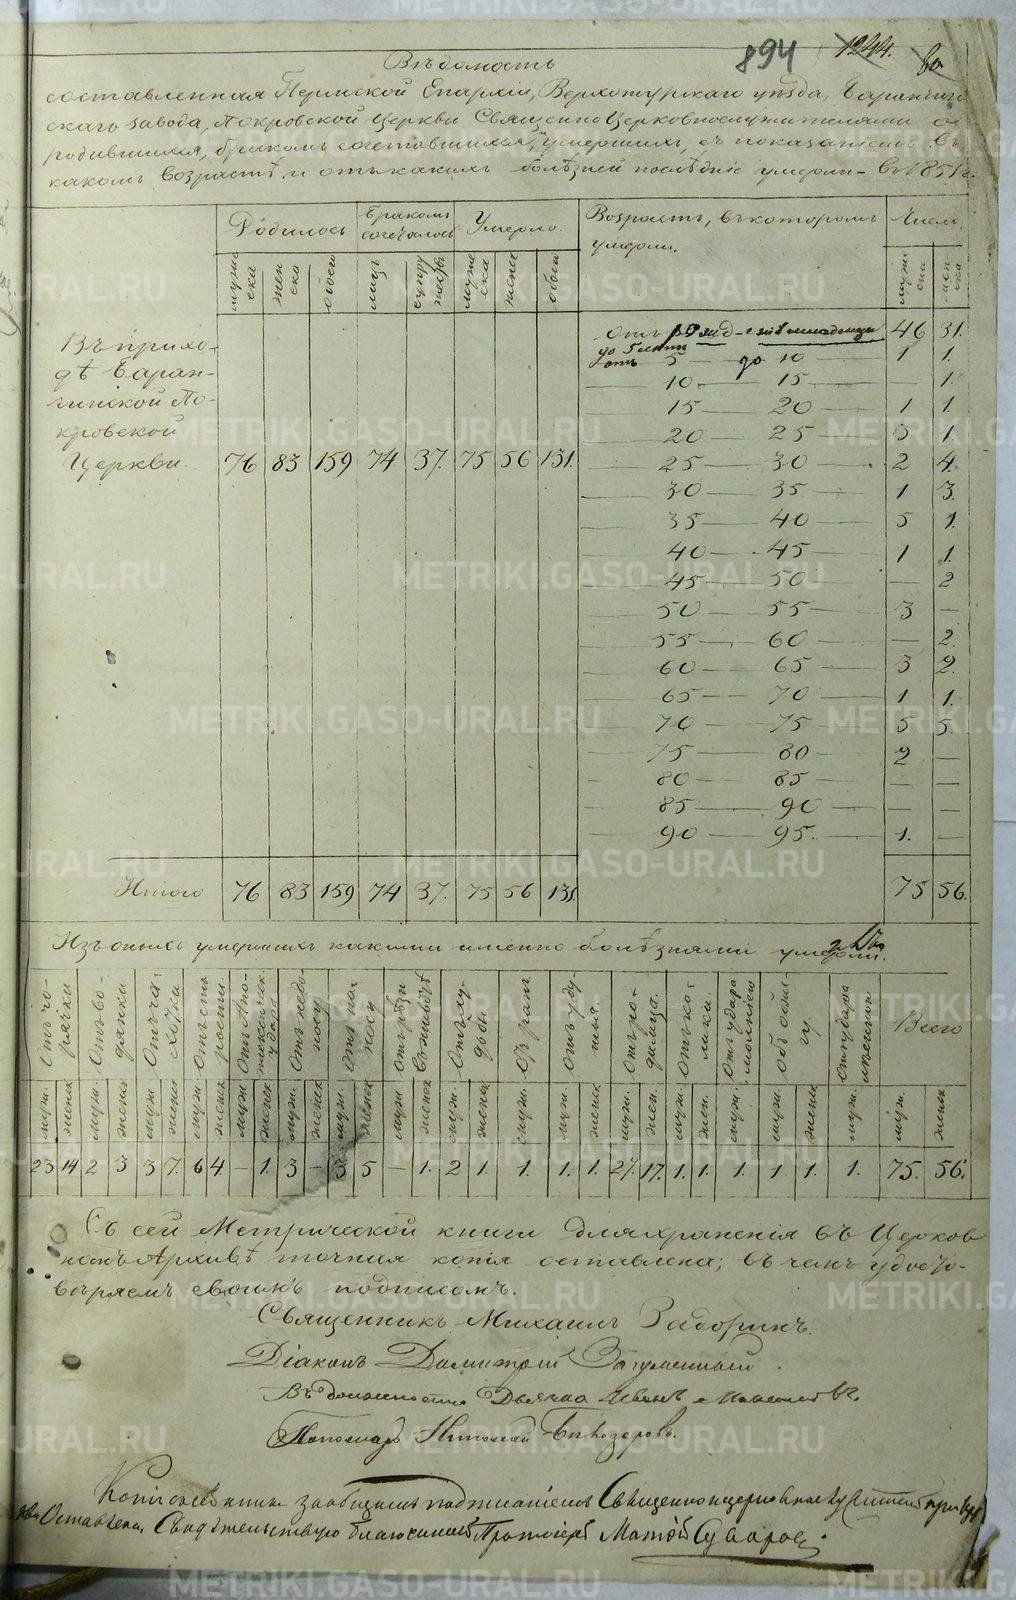 894 1244.
Вѣдомость
составленная Пермской Епархіи, Верхотурскаго уѣзда, Баранчин
скаго завода, Покровской Церкви Священноцерковнослужителями о
родившихся, бракомъ сочетавшихся, умершихъ, съ показаніемъ въ
какомъ возрастѣ и отъ какихъ болѣзней послѣдніе умерли въ 1851 г.
Родилось Бракомъ сочеталось Умерло. Возрастъ, въ которомъ умерли. Число.
мужеска женска обоего лицъ супружествъ мужеска женска обоего мужеска женска
Въ прихо-
дѣ Баран-
чинской По-
кровской
Церкви. 76 83 159 74 37. 75 56 131.
Отъ рожд 46 31.
до 5 лѣтъ
отъ 5 до 10 1 1.
10 — 15 — — 1.
15 — 20 — 1 1.
20 — 25 — 5 1.
25 — 30 — 2 4.
30 — 35 — 1 3.
35 — 40 — 5 1.
40 — 45 — 1 1.
45 — 50 — — 2
50 — 55 — 3 —
55 — 60 — — 2.
60 — 65 — 3 2.
65 — 70 — 1 1.
70 — 75 — 5 5.
75 — 80 — 2 —
80 — 85 — — —
85 — 90 — — —
90 — 95. — 1. —
Итого 76 83 159 74 37. 75 56 131. 75 56.
Изъ оныхъ умершихъ какими именно болѣзнями умерли.
Отъ горячки Отъ водянки Отъ чахотки Отъ старости Отъ апоплексическ. удара Отъ недоносу Отъ поносу Отъ рѣзи въ животѣ Отъ худобы Отъ ранъ Отъ удушья. Отъ родимца. Отъ колики. Отъ удара молніею Отъ удара Всего
муж. женск муж. женск муж. женск муж. женск муж женск муж. женск муж. женск муж женск муж. женск муж. муж. женск муж. жен. муж. жен. муж. муж. жен. муж. муж. женск
23 14 2 3 3 7. 6 4 — 1. 3 — 3 5 — 1. 2 1. 1. 1. 1. 27. 17. 1. 1. 1. 1 1. 1. 75. 56.
Съ сей Метрической книги для храненія въ Церков
номъ Архивѣ точная копія оставлена; въ чемъ удосто-
вѣряемъ своимъ подписомъ.
Священникъ Михаилъ Задоринъ.
Діаконъ Димитрій
Въ должности Дьячка Иванъ
Пономарь Николай
Копія сей книги за общимъ подписаніемъ Священноцерковнослужителей при
Оставлена, Свидѣтельствую благочинный Протоіерей
METRIKI.GASO-URAL.RU